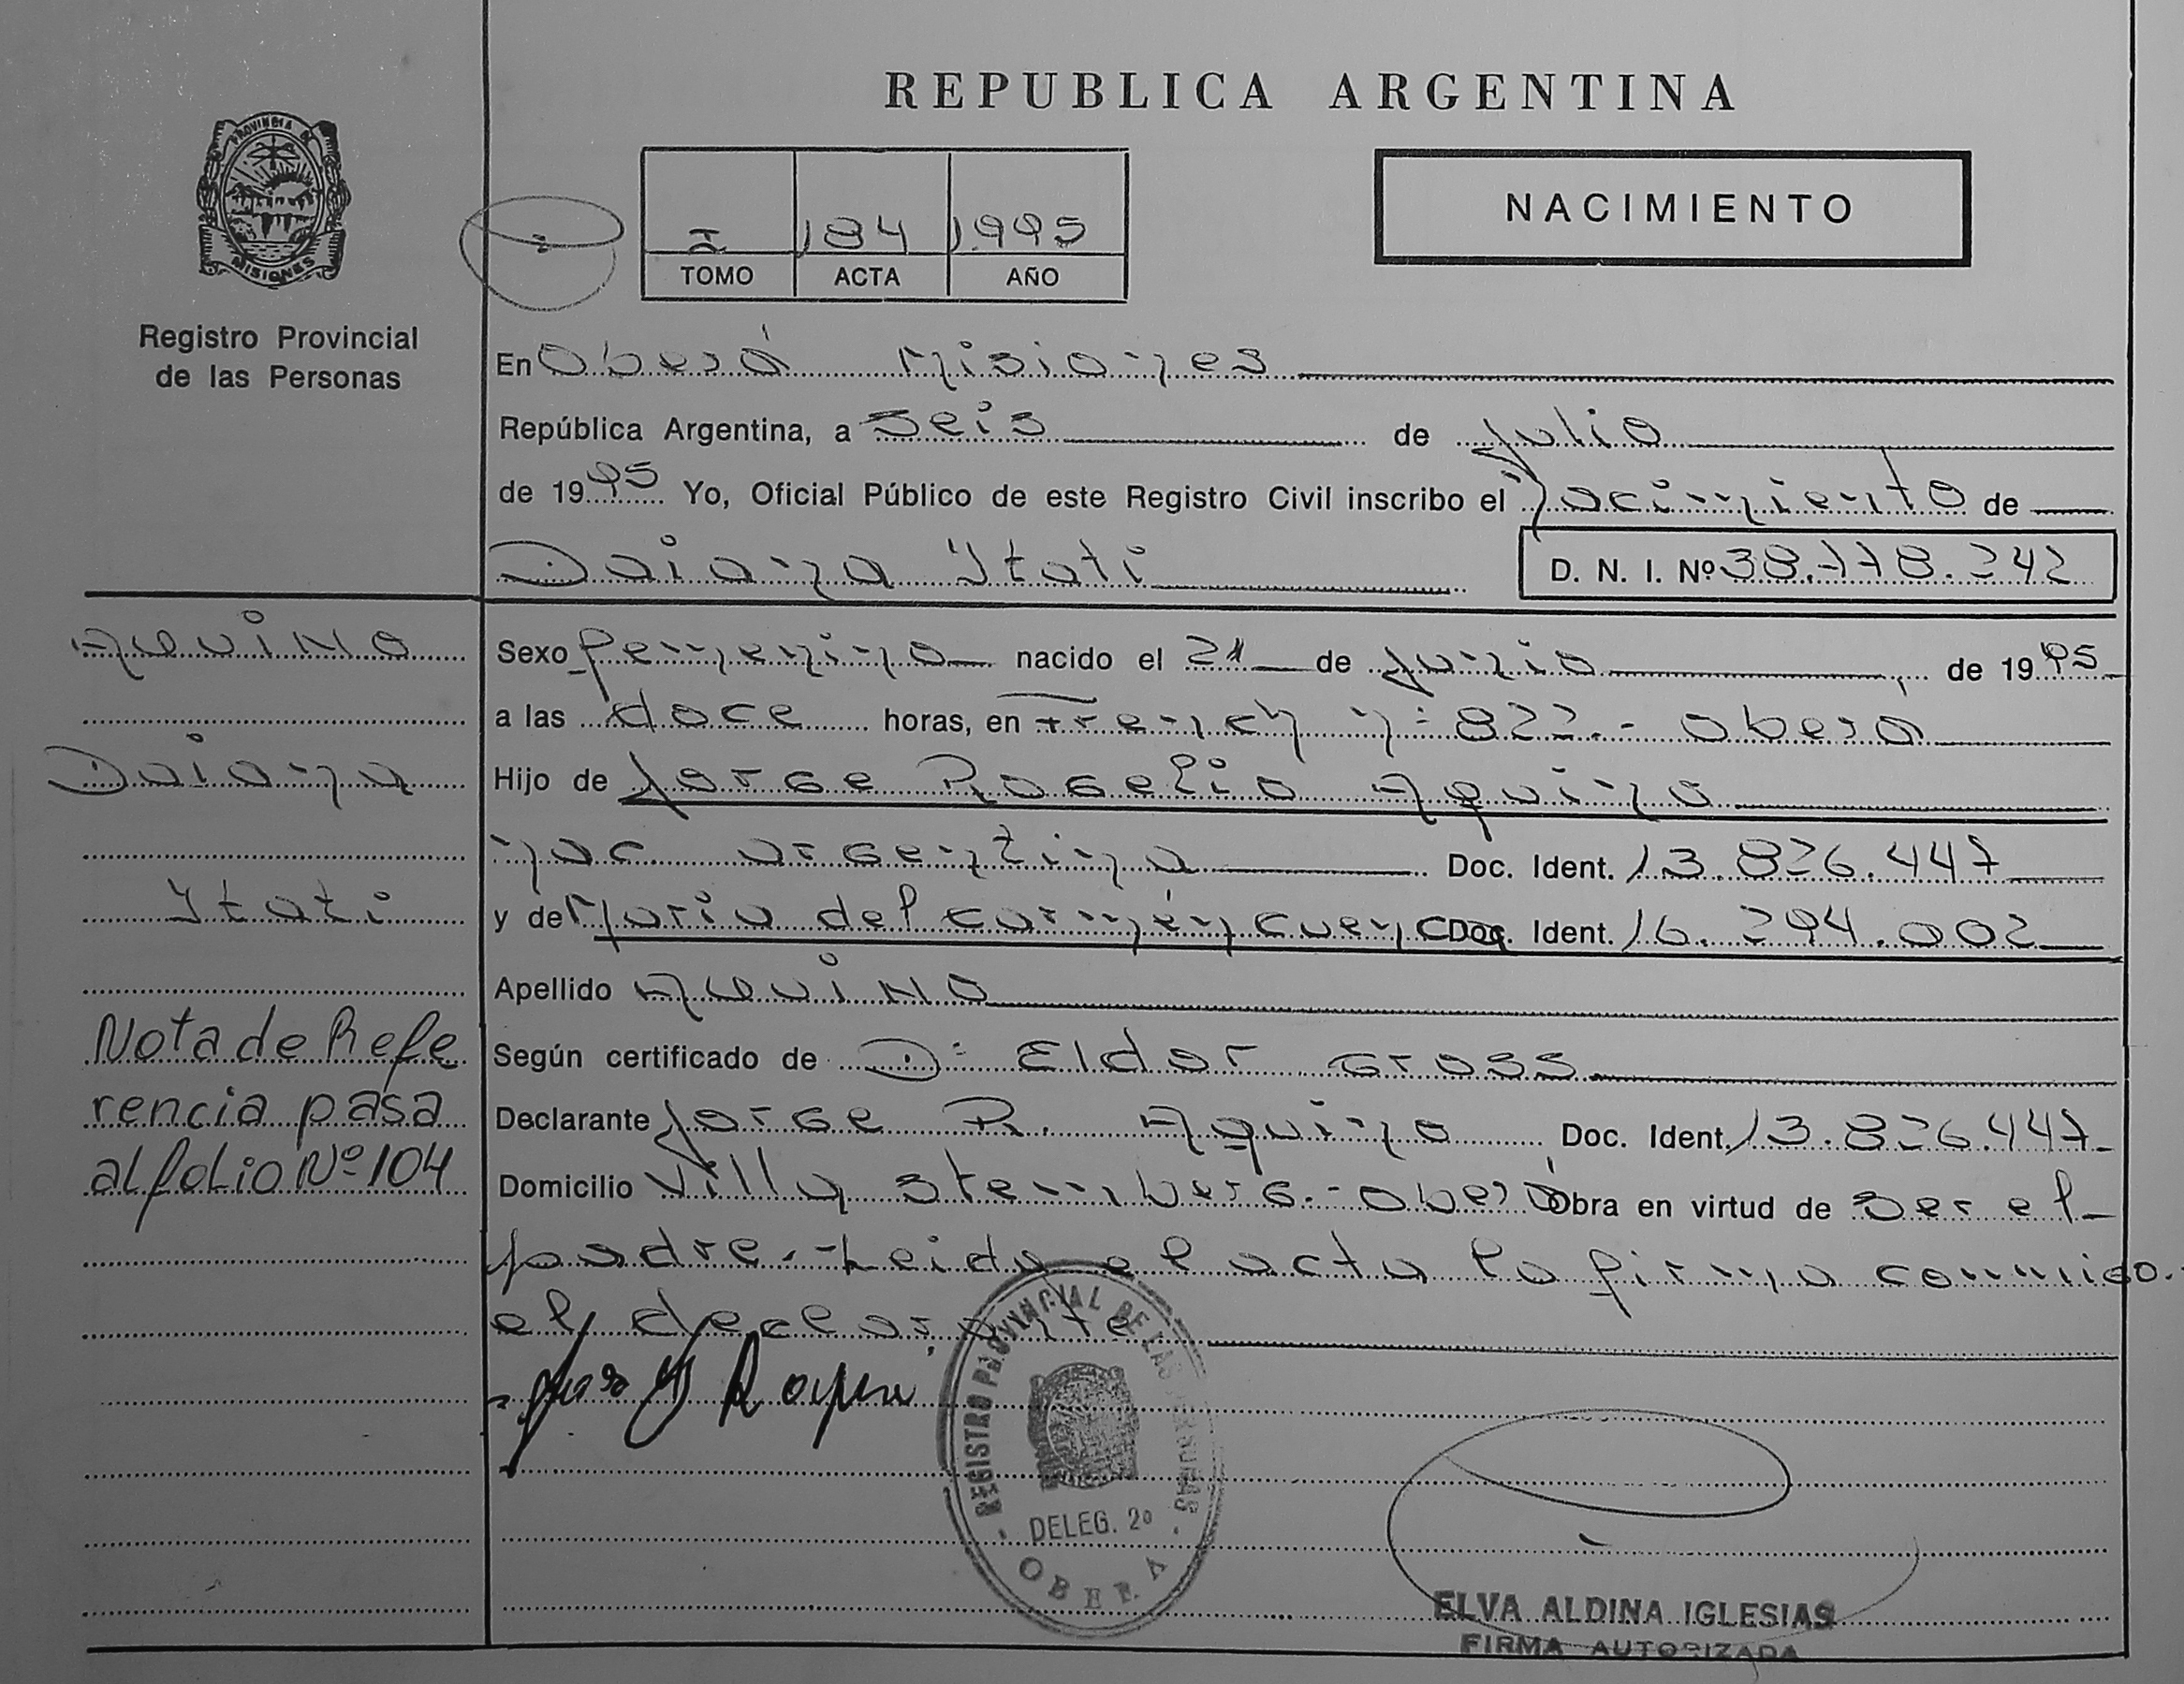 REPUBLICA ARGENTINA
PROVINCIA DE
MISIONES
Registro Provincial
de las Personas
I 184 1995
TOMO ACTA AÑO
NACIMIENTO
En Oberá Misiones
República Argentina, a Seis de Julio
de 1995 Yo, Oficial Público de este Registro Civil inscribo el Nacimiento de
Daiana Itati D. N. I. Nº 38.778.242
AQUINO
Daiana
Itati
Nota de Refe
rencia pasa
al folio Nº 104
Sexo femenino nacido el 21 de Junio de 1995
a las doce horas, en French nº 822.- Oberá
Hijo de Jorge Rogelio Aquino
nac. argentina Doc. Ident. 13.826.447
y de Maria del carmen cuenca Doc. Ident. 16.294.002
Apellido AQUINO
Según certificado de Dº Eldor Gross
Declarante Jorge R. Aquino Doc. Ident. 13.826.447
Domicilio Villa Stemberg.- Oberá Obra en virtud de ser el
padre.- Leida el acta la firma conmigo.
el declarante
REGISTRO PROVINCIAL DE LAS PERSONAS
DELEG. 2º
OBERA
ELVA ALDINA IGLESIAS
FIRMA AUTORIZADA